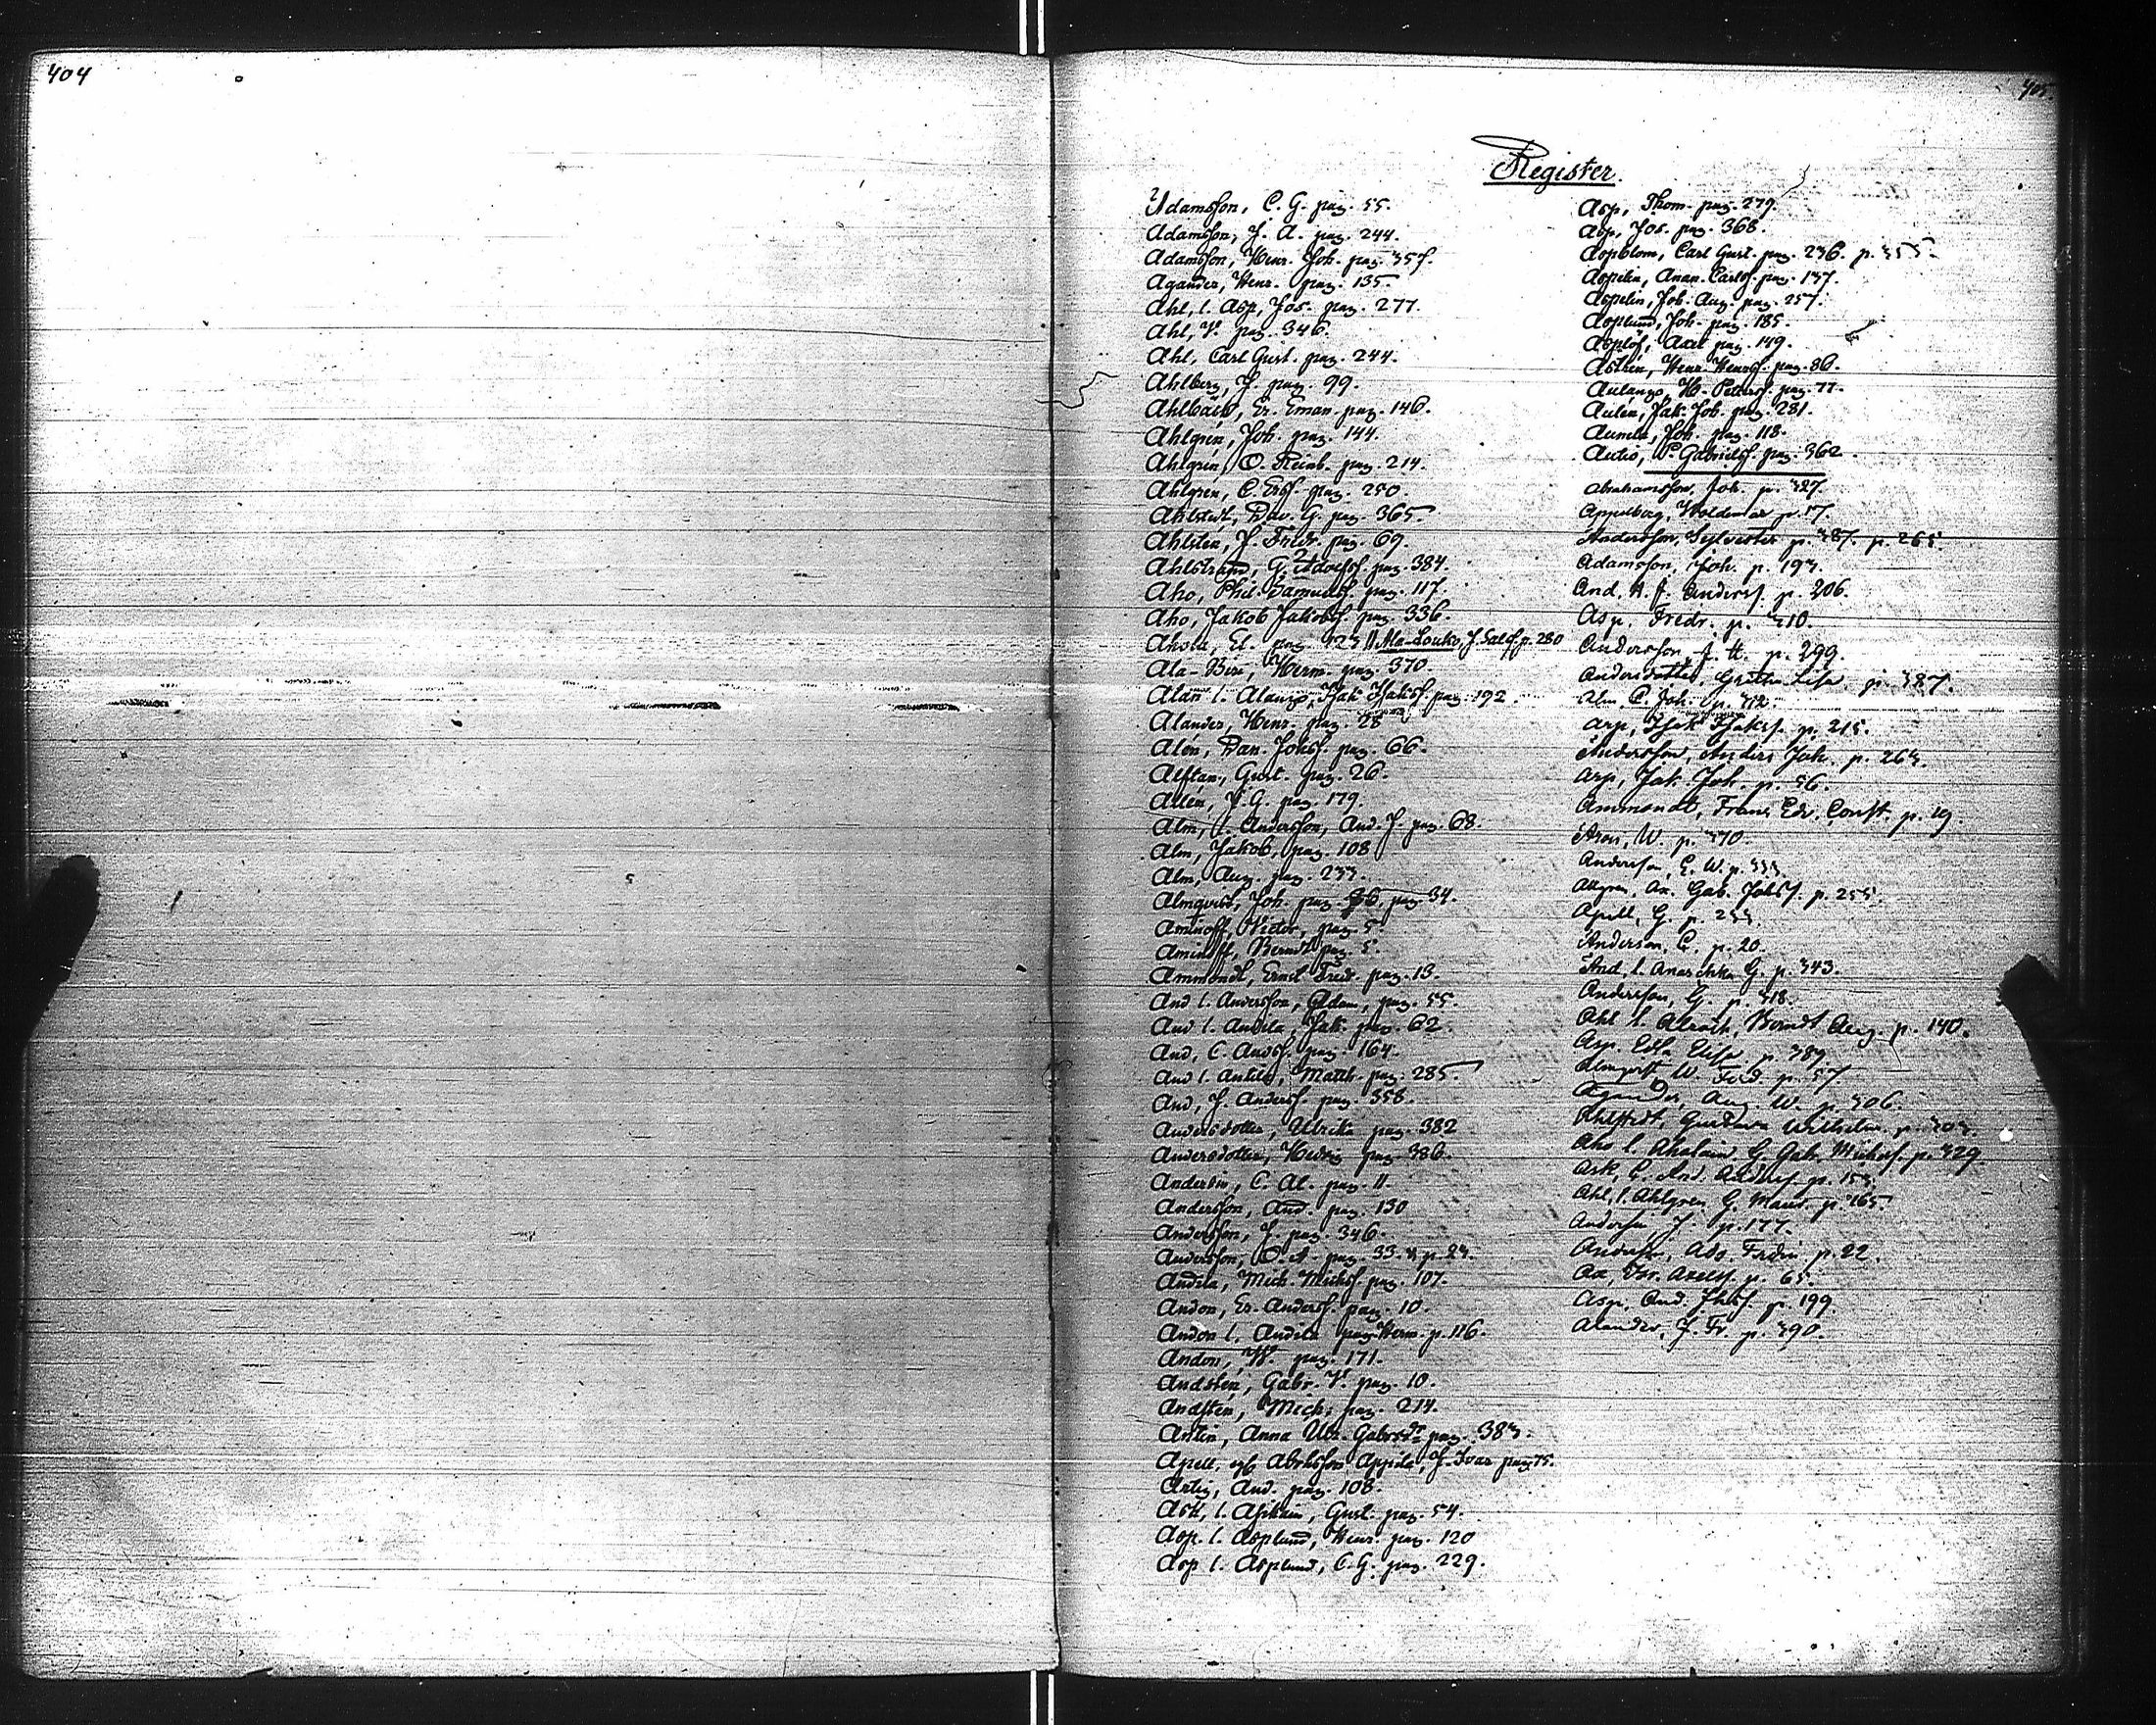 404
405.
Register.
Adamsson, C. G. pag. 55.
Adamsson, J. A. pag. 244.
Adamsson, Henr. Joh. pag. 357.
Agander, Henr. pag. 135.
Ahl, l. Asp, Jos. pag. 277.
Ahl, V. pag. 346.
Ahl, Carl Gust. pag. 244.
Ahlberg, J. pag. 99.
Ahlbäck, Er. Eman. pag. 146.
Ahlgrén, Joh. pag. 144.
Ahlgrén, O. Reinh. pag. 214.
Ahlgrén, C. Erss. pag. 250.
Ahlstedt, Dav. G. pag. 365.
Ahlsten, J. Fredr. pag. 69.
Ahlstrand, G. Adolfss. pag. 384.
Aho, Phil. Samuelss. pag. 117.
Aho, Jakob Jakobss. pag. 336.
Ahola, El. pag. 323 || Ala-Louko, J. p. 280
Ala-Beri, Herm. pag. 370.
Alan l. Alango, Isak Isakss. pag. 192.
Alander, Henr. pag. 28
Alén, Dan. Johss. pag. 66.
Alftan, Gust. pag. 26.
Allén, J. G. pag. 179.
Alm, l. Andersson, And. J. pag. 68.
Alm, Jakob, pag. 108
Alm, Aug. pag. 233.
Almqvist, Joh. pag. 36. pag. 34.
Aminoff, Victor, pag. 5
Aminoff, Berndt pag. 5.
Ammondt, Ernst Fredr. pag. 13.
And l. Andersson, Adam, pag. 55.
And l. Andela, Jak. pag. 62.
And, C. Andss. pag. 164.
And l. Antila, Matth. pag. 285.
And, J. Anderss. pag. 358.
Andersdotter, Ulrika pag. 382
Andersdotter, Hedvig pag. 386.
Andersin, C. Al. pag. 11.
Andersson, And. pag. 130
Andersson, J. pag. 346.
Andersson, O. A. pag. 33. p. 23.
Andela, Mich. Michss. pag. 107.
Andon, Er. Anderss. pag. 10.
Andon l. Andela Herm. p. 116.
Andon, W. pag. 171.
Andstén, Gabr. V. pag. 10.
Andsten, Mich. pag. 214.
Antin, Anna Ulr. Gabrsdr pag. 383.
Apell, Abrahsson Appila, J. Ivar pag. 75.
Artig, And. pag. 108.
Ask, l. Gust. pag. 54.
Asp. l. Asplund, Henr. pag. 120
Asp l. Asplund, C. G. pag. 229.
Asp, Thom. pag. 279.
Asp, Jos. pag. 368.
Aspblom, Carl Gust. pag. 236. p. 355.
Aspelin, Anan. Carlss. pag. 137.
Aspelin, Joh. Aug. pag. 257.
Asplund, Joh. pag. 185.
Asplöf, Axel pag. 149.
Astrén, Henr. Henrss. pag. 86.
Aulango, H. Peterss. pag. 77.
Aulén, Jak. Joh. pag. 281.
Aumela, Joh. pag. 118.
Autio, P. Gabrielss. pag. 362.
Abrahamsson, Joh. p. 327.
Appelberg, Woldemar p. 17.
Andersson, Sylvester p. 387. p. 265.
Adamsson, Joh. p. 193.
And. A. J. Anderss. p. 206.
Asp. Fredr. p. 310.
Andersson J. H. p. 299.
Andersdotter, Gretha Lisa p. 387.
Alm C. Joh. p. 312.
Arp, Isak Isakss. p. 215.
Andersson, Anders Joh. p. 263.
Arp, Jak. Joh. p. 56.
Ammondt, Frans Edv. Const. p. 19.
Aron, W. p. 370.
Andersson, E. W. p. 333.
Gab. Johss. p. 255.
Apell, G. p. 253.
Anderson, C. p. 20.
And. l. G. p. 343.
Andersson, G. p. 318.
Ahl l. Berndt Aug. p. 140.
Asp. Edla Elisa p. 389.
Almqvist W. Ferd. p. 57.
Agander, Aug. W. p. 306.
Ahlstedt, Gustava Wilhelm. p. 303.
Aho l. Ahalain G. Gab. Michss. p. 329.
Ask, G. And. Anderss. p. 153.
Ahl, l. Ahlgren G. Maur. p. 165.
Andersson J. p. 177.
Andersson, Ado. Fredin. p. 22.
Ax, Isr. Axelss. p. 65.
Asp. And. Johss. p. 199.
Alander, J. Fr. p. 390.